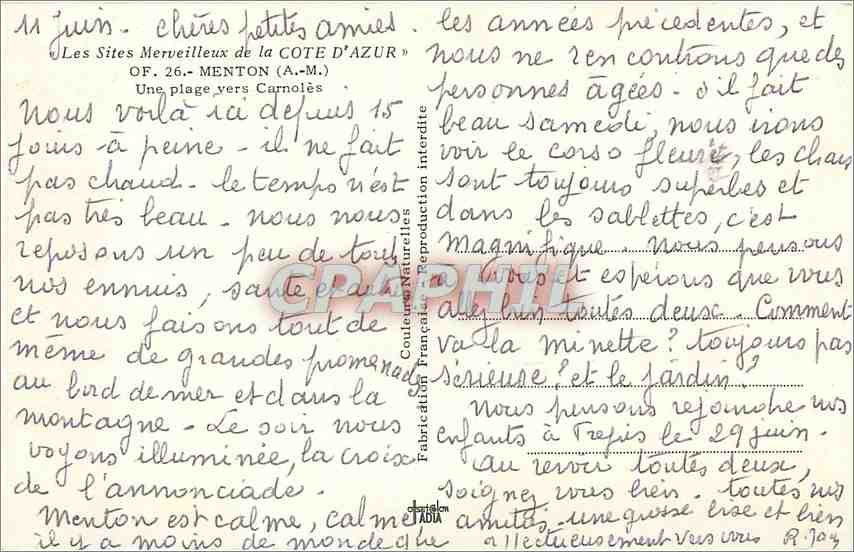 11 juin - chères petites amies.
"Les Sites Merveilleux de la COTE D'AZUR"
OF. 26.- MENTON (A.-M.)
Une plage vers Carnolès
Nous voilà ici depuis 15
jours à peine - il ne fait
pas chaud - le temps n'est
pas très beau - nous nous
reposons un peu de tous
nos ennuis, santé
et nous faisons tout de
même de grandes promenades
au bord de mer et dans la
montagne - Le soir nous
voyons illuminée, la croix
de l'annonciade.
Menton est calme, calme,
il y a moins de monde que
Couleurs Naturelles
Fabrication Française - Reproduction interdite
les années précédentes, et
nous ne rencontrons que des
personnes âgées - s'il fait
beau samedi, nous irons
voir le corso fleuri, les chars
sont toujours superbes et
dans les sablettes, c'est
magnifique. Nous pensons
à vous et espérons que vous
allez bien toutes deux. Comment
va la minette? toujours pas
sérieuse? et le jardin?
Nous pensons rejoindre nos
enfants à le 29 juin.
au revoir toutes deux,
soignez vous bien. toutes nos
amitiés - une grosse bise et bien
affectueusement vers vous R.
ADIA
CPAPHIL